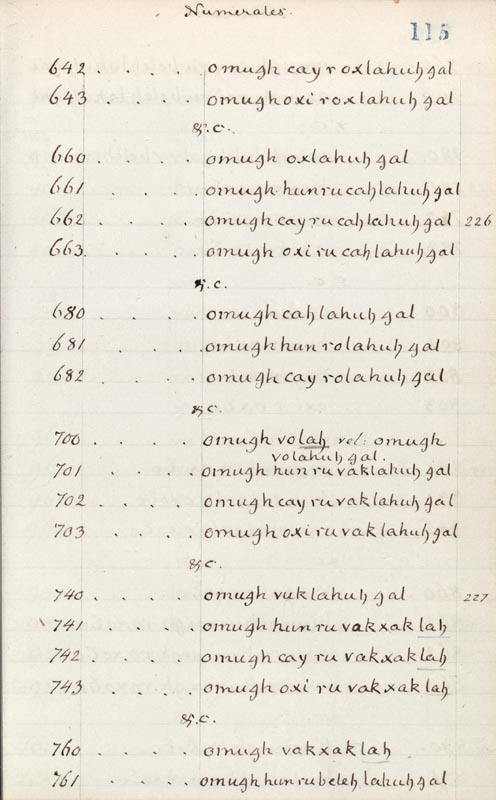 Numerales.
115
642 . . . . omugh cay roxlahuꜧ gal
643 . . . . omugh oxi roxlahuꜧ gal
&.c.
660 . . . . omugh oxlahuꜧ gal
661 . . . . omugh hun ru caꜧlahuꜧ gal
662 . . . . omugh cay ru caꜧlahuꜧ gal 226
663. . . . omugh oxi ru caꜧlahuꜧ gal
&.c.
680 . . . . omugh caꜧlahuꜧ gal
681 . . . . omugh hun rolahuꜧ gal
682 . . . . omugh cay rolahuꜧ gal
&c.
700 . . . . omugh volaꜧ vel: omugh
volahuꜧ gal.
701 . . . . omugh hun ru vaklahuꜧ gal
702 . . . . omugh cay ru vaklahuꜧ gal
703 . . . . omugh oxi ru vaklahuꜧ gal
&c.
740 . . . . omugh vuklahuꜧ gal 227
741 . . . . omugh hun ru vakxak laꜧ
742 . . . . omugh cay ru vakxaklaꜧ
743 . . . . omugh oxi ru vakxak laꜧ
&.c.
760 . . . . omugh vakxaklaꜧ
761 . . . . omugh hun rubeleꜧ lahuꜧ gal